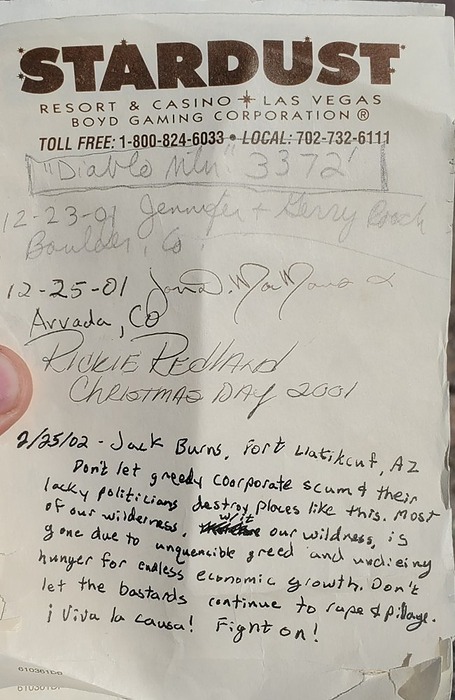 STARDUST
RESORT & CASINO LAS VEGAS
BOYD GAMING CORPORATION ®
TOLL FREE: 1-800-824-6033 • LOCAL: 702-732-6111
"Diablo Mtn" 3372'
12-23-01 Jennifer + Gerry Roach
Boulder, Co.
12-25-01
Arvada, CO
RICKIE REDLAND
CHRISTMAS DAY 2001
2/25/02 - Jack Burns, Fort Llatikcuf, AZ
Don't let greedy coorporate scum & their
lacky politicians destroy places like this. Most
of our wilderness, w/it our wildness, is
gone due to unquencible greed and undieing
hunger for endless economic growth. Don't
let the bastards continue to rape & pillage.
¡Viva la causa! Fight on!